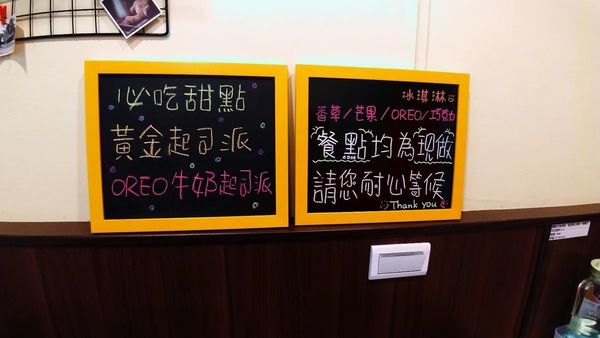 必吃甜點
黃金起司派
OREO牛奶起司派
冰淇淋
香草/芒果/OREO/巧克力
餐點均為現做
請您耐心等候
Thank you